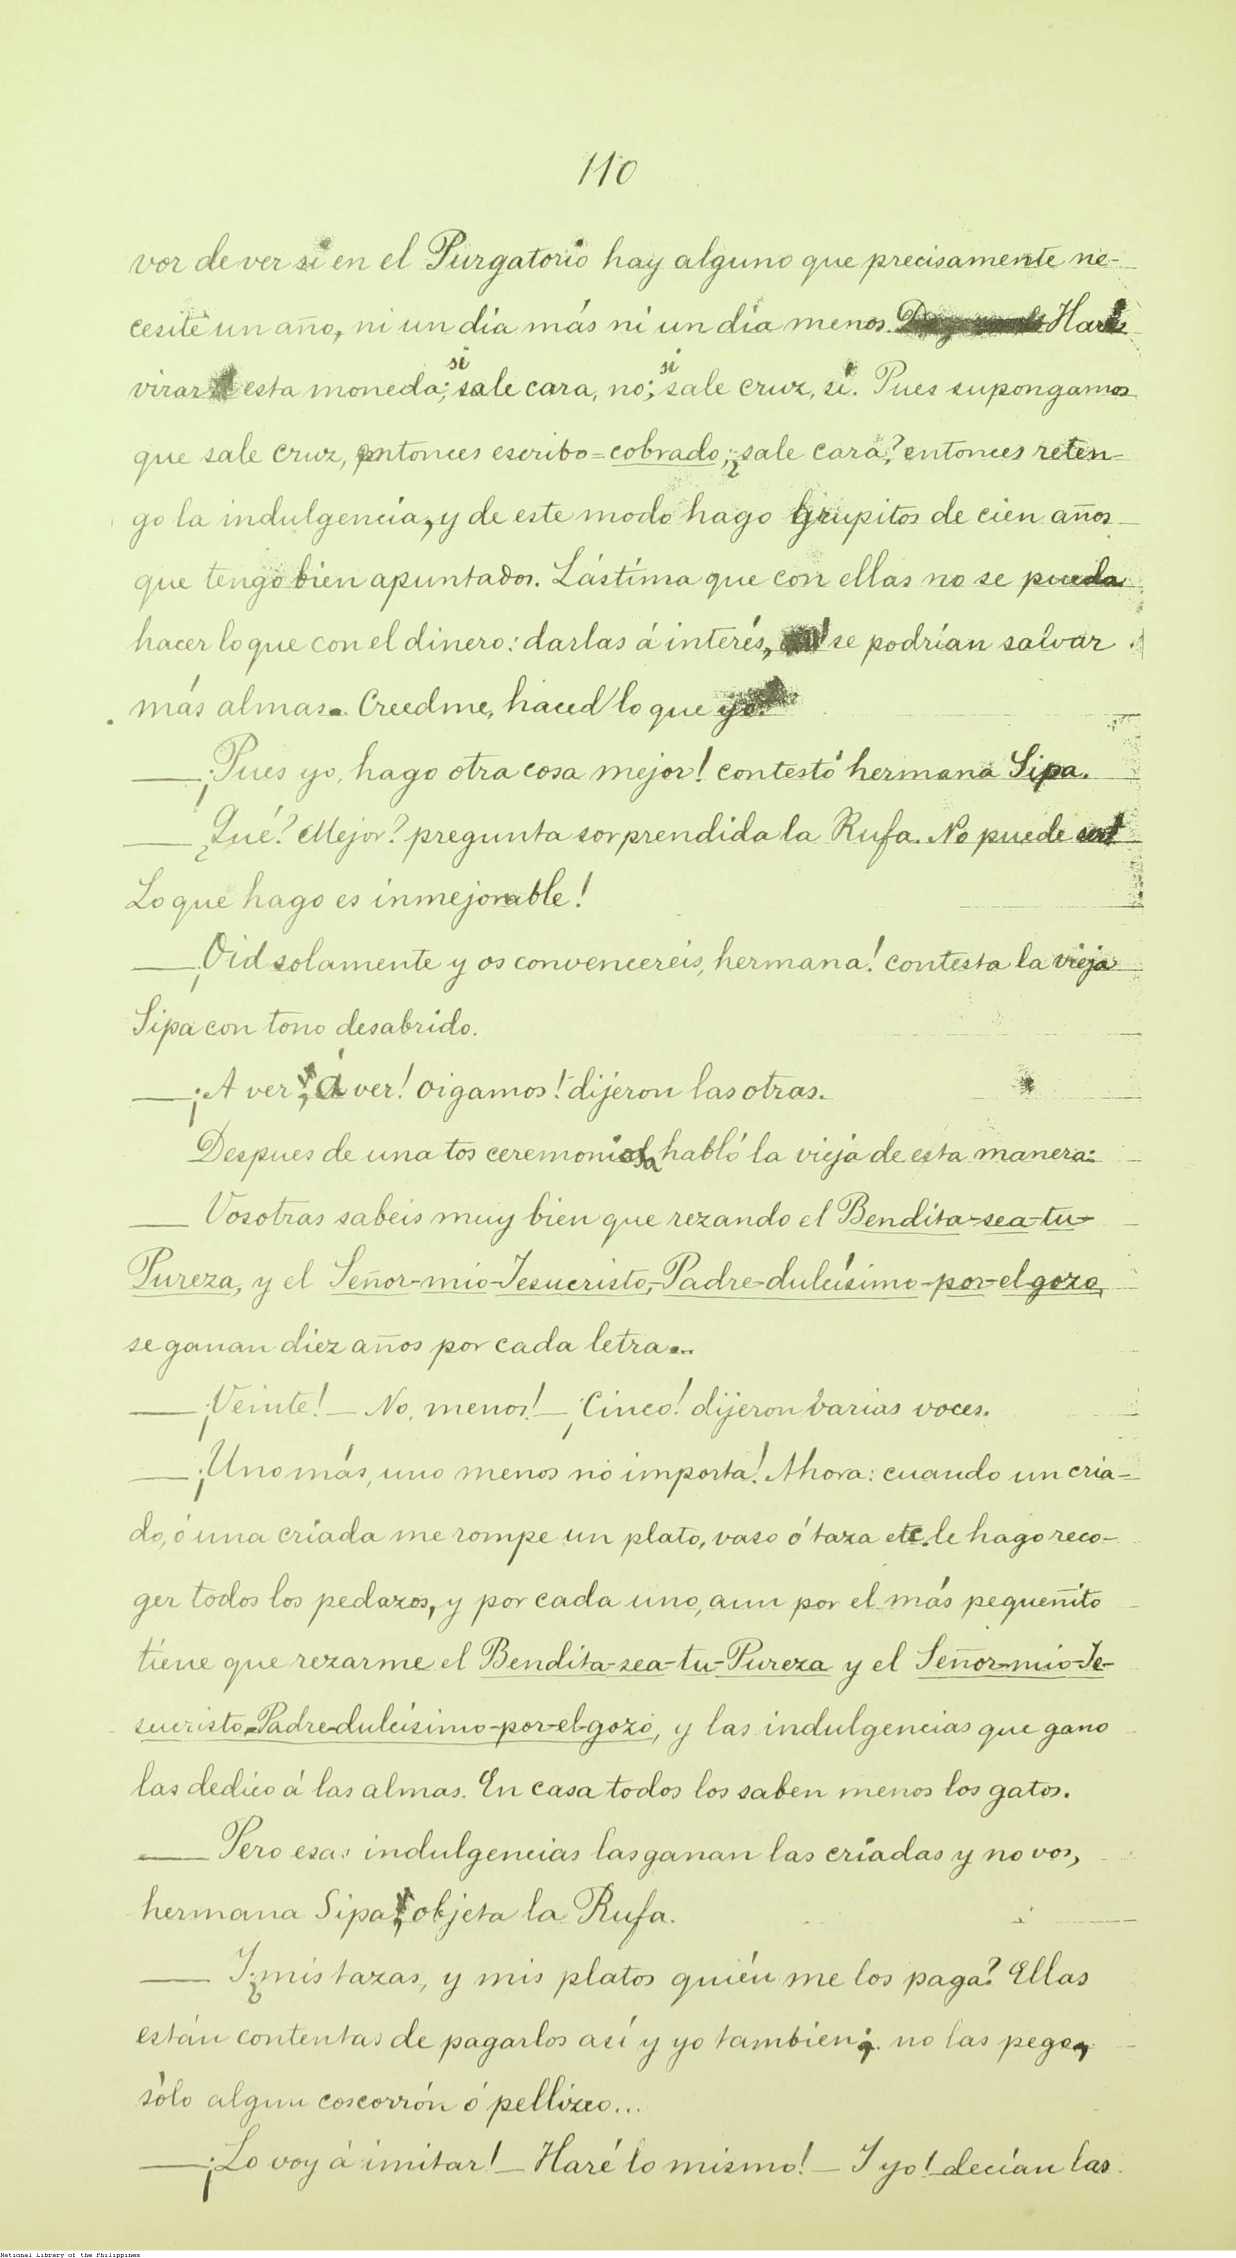 110
vor de ver si en el Purgatorio hay alguno que precisamente ne-
cesite un año, ni un día más ni un día menos. Haréis
virar esta moneda; si sale cara, no; si sale cruz, sí. Pues supongamos
que sale cruz, entonces escribo=cobrado; ¿sale cara? entonces reten-
go la indulgencia, y de este modo hago grupitos de cien años
que tengo bien apuntados. Lástima que con ellas no se pueda
hacer lo que con el dinero: darlas á interés, se podrían salvar
más almas. Creedme, haced lo que yo.
—¡Pues yo, hago otra cosa mejor! contestó hermana Sipa.
—¿Qué? Mejor? pregunta sorprendida la Rufa. No puede ser!
Lo que hago es inmejorable!
—¡Oid solamente y os convencereis, hermana! contesta la vieja
Sipa con tono desabrido.
—¡A ver, á ver! oigamos! dijeron las otras.
Despues de una tos ceremoniosa habló la vieja de esta manera:
— Vosotras sabeis muy bien que rezando el Bendita-sea-tu-
Pureza, y el Señor-mio-Jesucristo,-Padre-dulcísimo-por-el-gozo,
se ganan diez años por cada letra...
—¡Veinte!— No, menos!—¡Cinco! dijeron varias voces.
—¡Uno más, uno menos no importa! Ahora: cuando un cria-
do, ó una criada me rompe un plato, vaso ó taza etc. le hago reco-
ger todos los pedazos, y por cada uno, aun por el más pequeñito
tiene que rezarme el Bendita-sea-tu-Pureza y el Señor-mio-Je-
sucristo-Padre-dulcísimo-por-el-gozo, y las indulgencias que gano
las dedico á las almas. En casa todos los saben menos los gatos.
— Pero esas indulgencias las ganan las criadas y no vos,
hermana Sipa, objeta la Rufa.
— Y ¿mis tazas, y mis platos quién me los paga? Ellas
están contentas de pagarlos así y yo tambien; no las pego,
sólo algun coscorrón ó pellizco...
—¡Lo voy á imitar!— Haré lo mismo!— Y yo! decían las